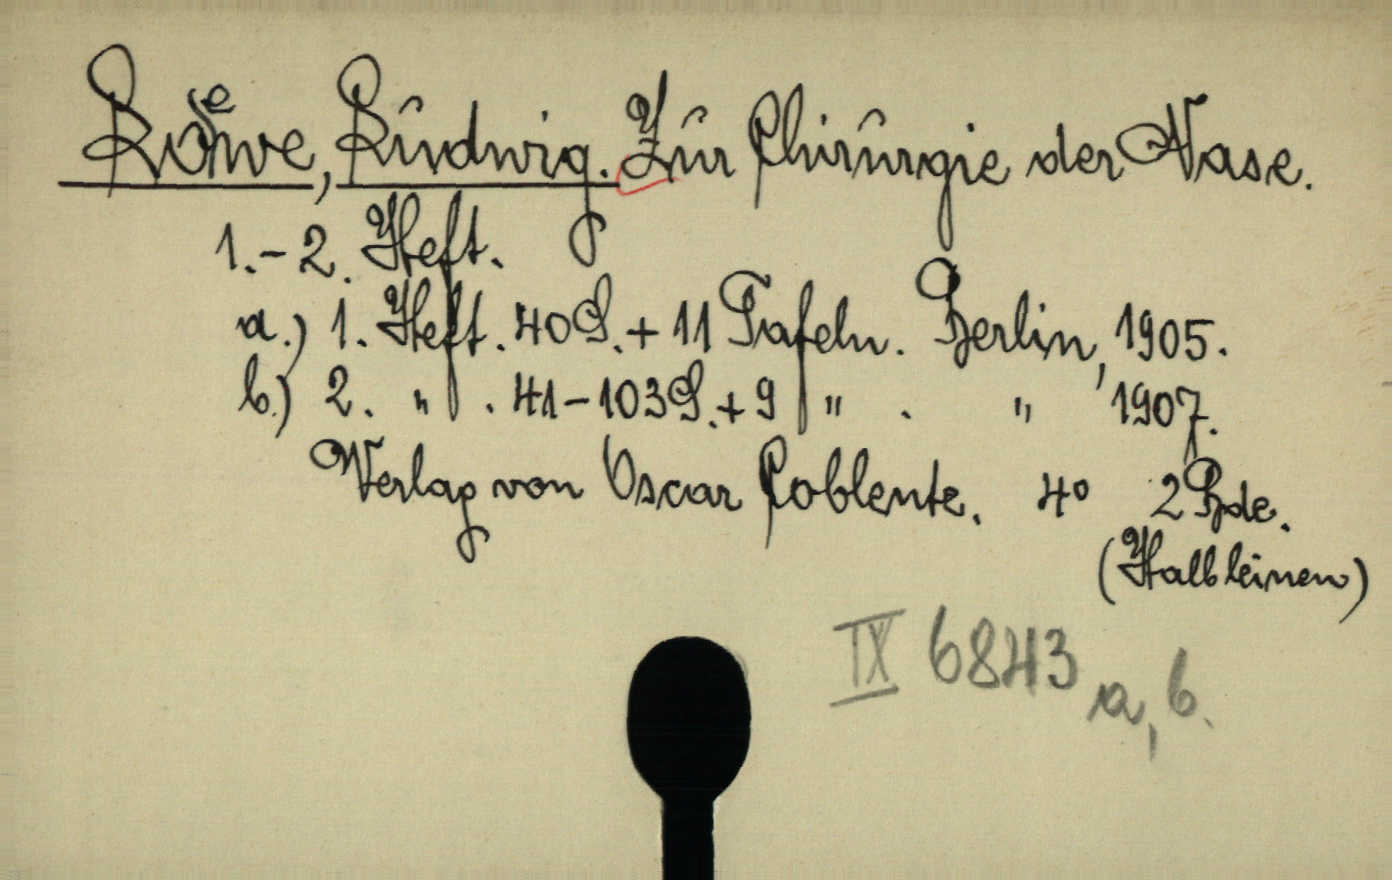 Loewe, Ludwig. Zur Chirurgie der Nase.
1.-2. Heft.
a.) 1. Heft. 40 S. + 11 Tafeln. Berlin, 1905.
b.) 2. " . 41-103 S. + 9 " . " 1907.
Verlag von Oscar Coblentz. 4° 2 Bde.
(Halbleinen)
IX 6843 a, b.